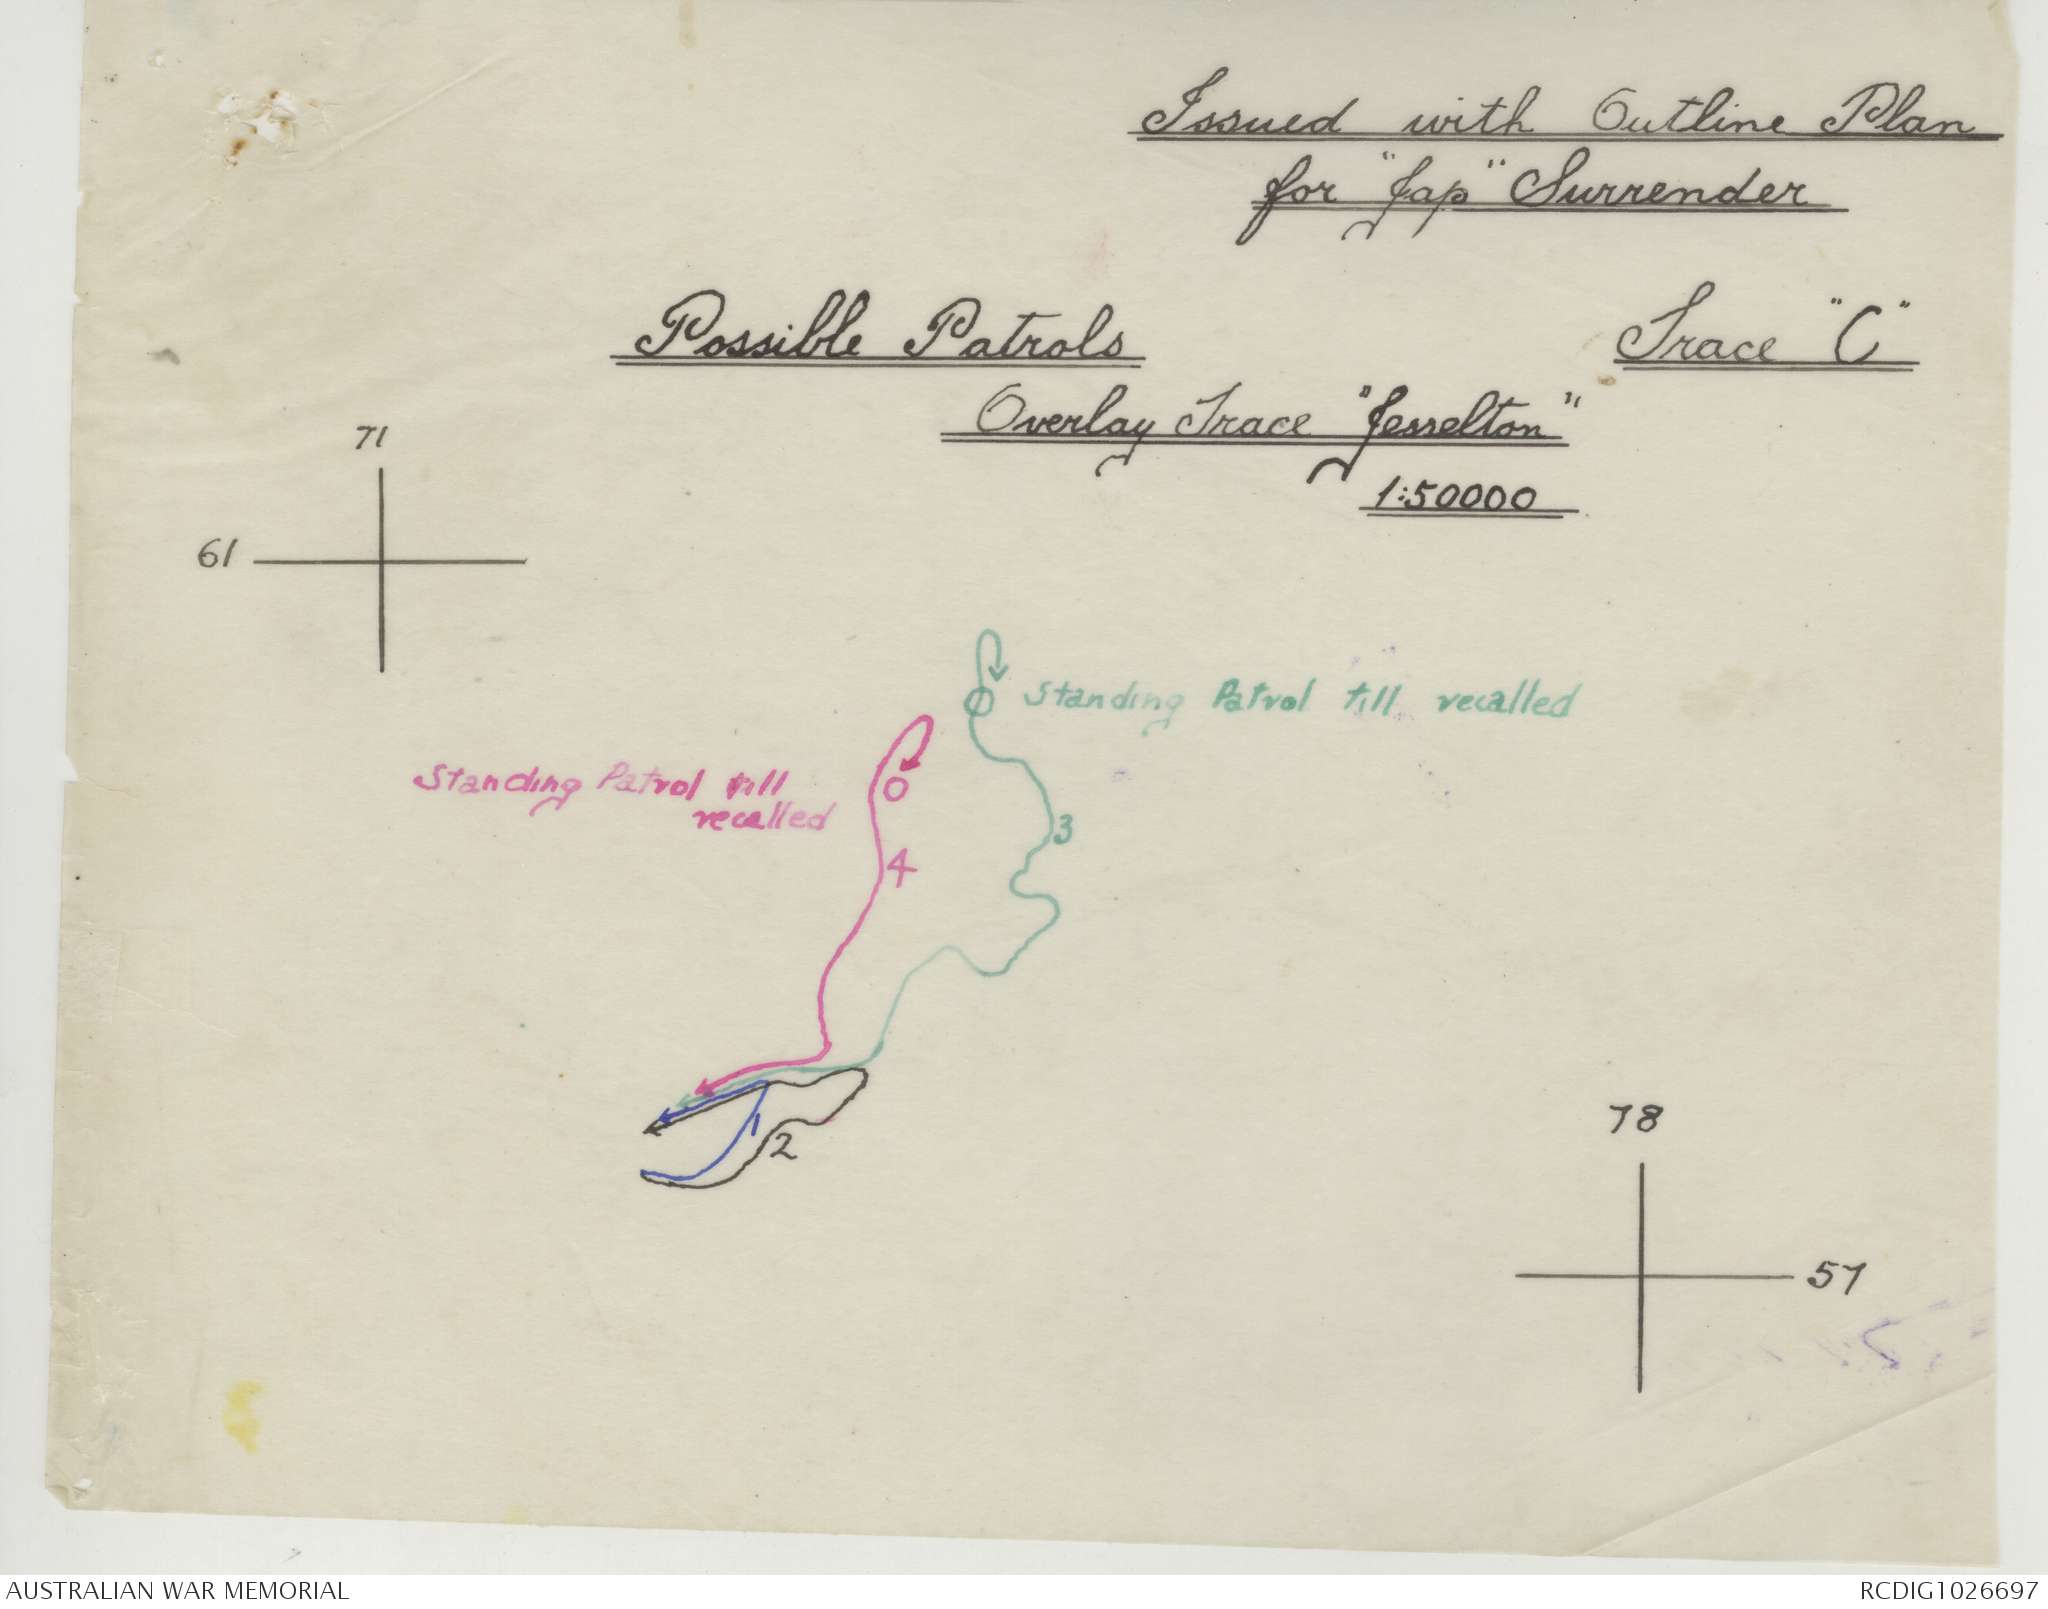 Issued with Outline Plan
for "Jap" Surrender
Possible Patrols
Trace "C"
Overlay Trace "Jesselton"
1:50000
71
61
Standing Patrol till recalled
Standing Patrol till
recalled
3
4
1
2
78
57
AUSTRALIAN WAR MEMORIAL
RCDIG1026697